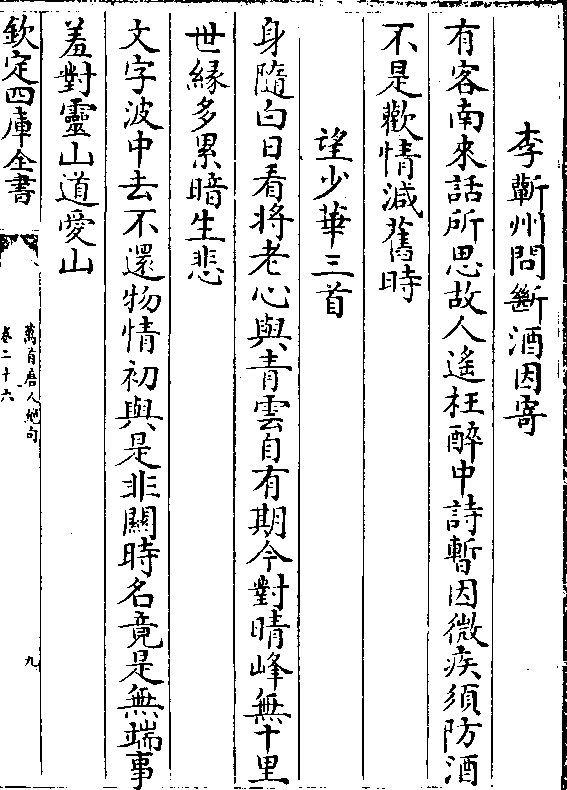 李蘄州問斷酒因寄
有客南來話所思故人遙枉醉中詩暫因微疾須防酒
不是歡情減舊時
望少華三首
身隨白日看將老心與青雲自有期今對晴峰無十里
世緣多累暗生悲
文字波中去不還物情初與是非關時名竟是無端事
羞對靈山道愛山
欽定四庫全書
萬首唐人絶句
卷二十六
九